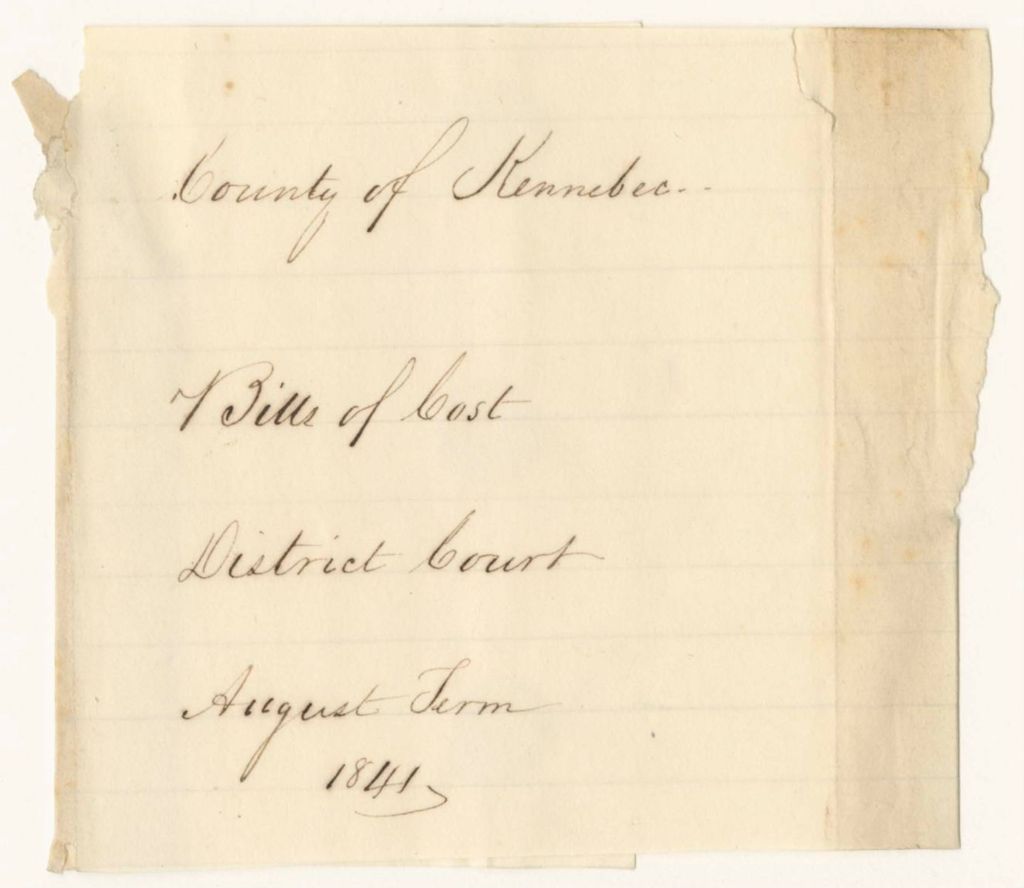 County of Kennebec.
Bills of Cost
District Court
August Term
1841